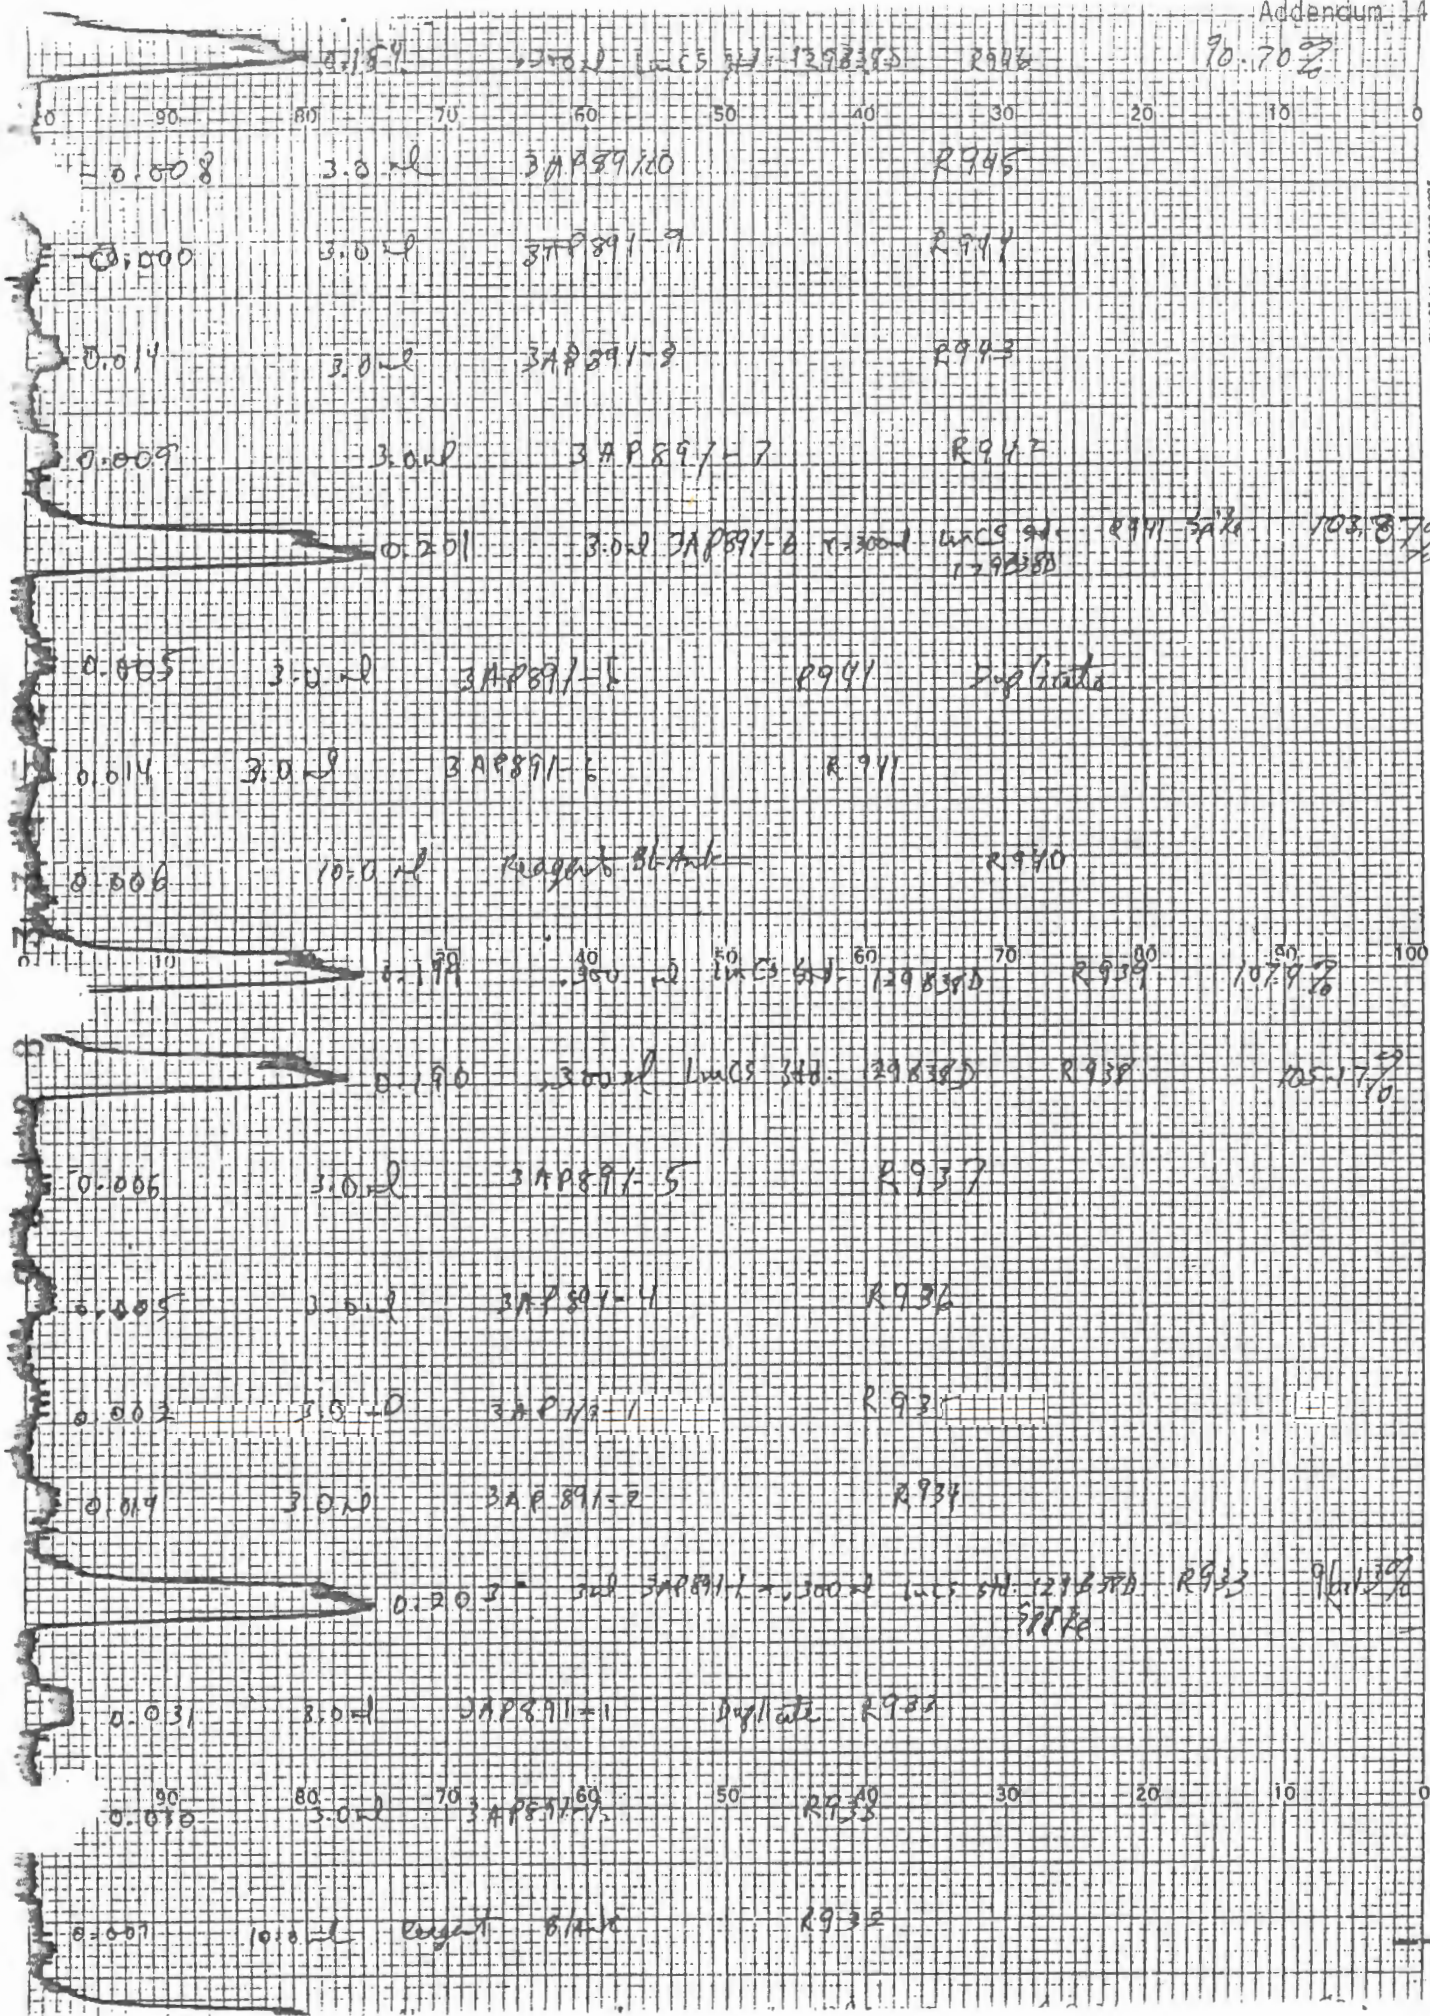 Addendum 14
0.184 .300 ml LmCS Std- 129838D R946 90.70%
90 80 70 60 50 40 30 20 10 0
0.008 3.0 ml 3AP891-10 R945
0.000 3.0 ml 3AP891-9 R944
0.014 3.0 ml 3AP891-8 R943
0.009 3.0 ml 3AP891-7 R942
0.201 3.0 ml 3AP891-6 .300 ml LmCS std. R941 Spike 103.87%
129838D
0.005 3.0 ml 3AP891-6 R941 Duplicate
0.014 3.0 ml 3AP891-6 R941
0.006 10.0 ml Reagent Blank R940
0 10 20 30 40 50 60 70 80 90 100
0.194 .300 ml LmCS Std- 129838D R939 107.4%
0.190 .300 ml LmCS Std. 129838D R938 105.17%
0.006 3.0 ml 3AP891-5 R937
0.005 3.0 ml 3AP891-4 R936
0.002 3.0 ml R93
0.014 3.0 ml 3AP891-2 R934
0.203 3ml 3AP891-1 .300 ml LmCS std. 129838D R933
Spike
0.031 3.0 ml 3AP891-1 Duplicate R933
90 80 70 60 50 40 30 20 10 0
0.030 3.0 ml 3AP891-1 R933
0.007 10.0 ml Reagent Blank R932